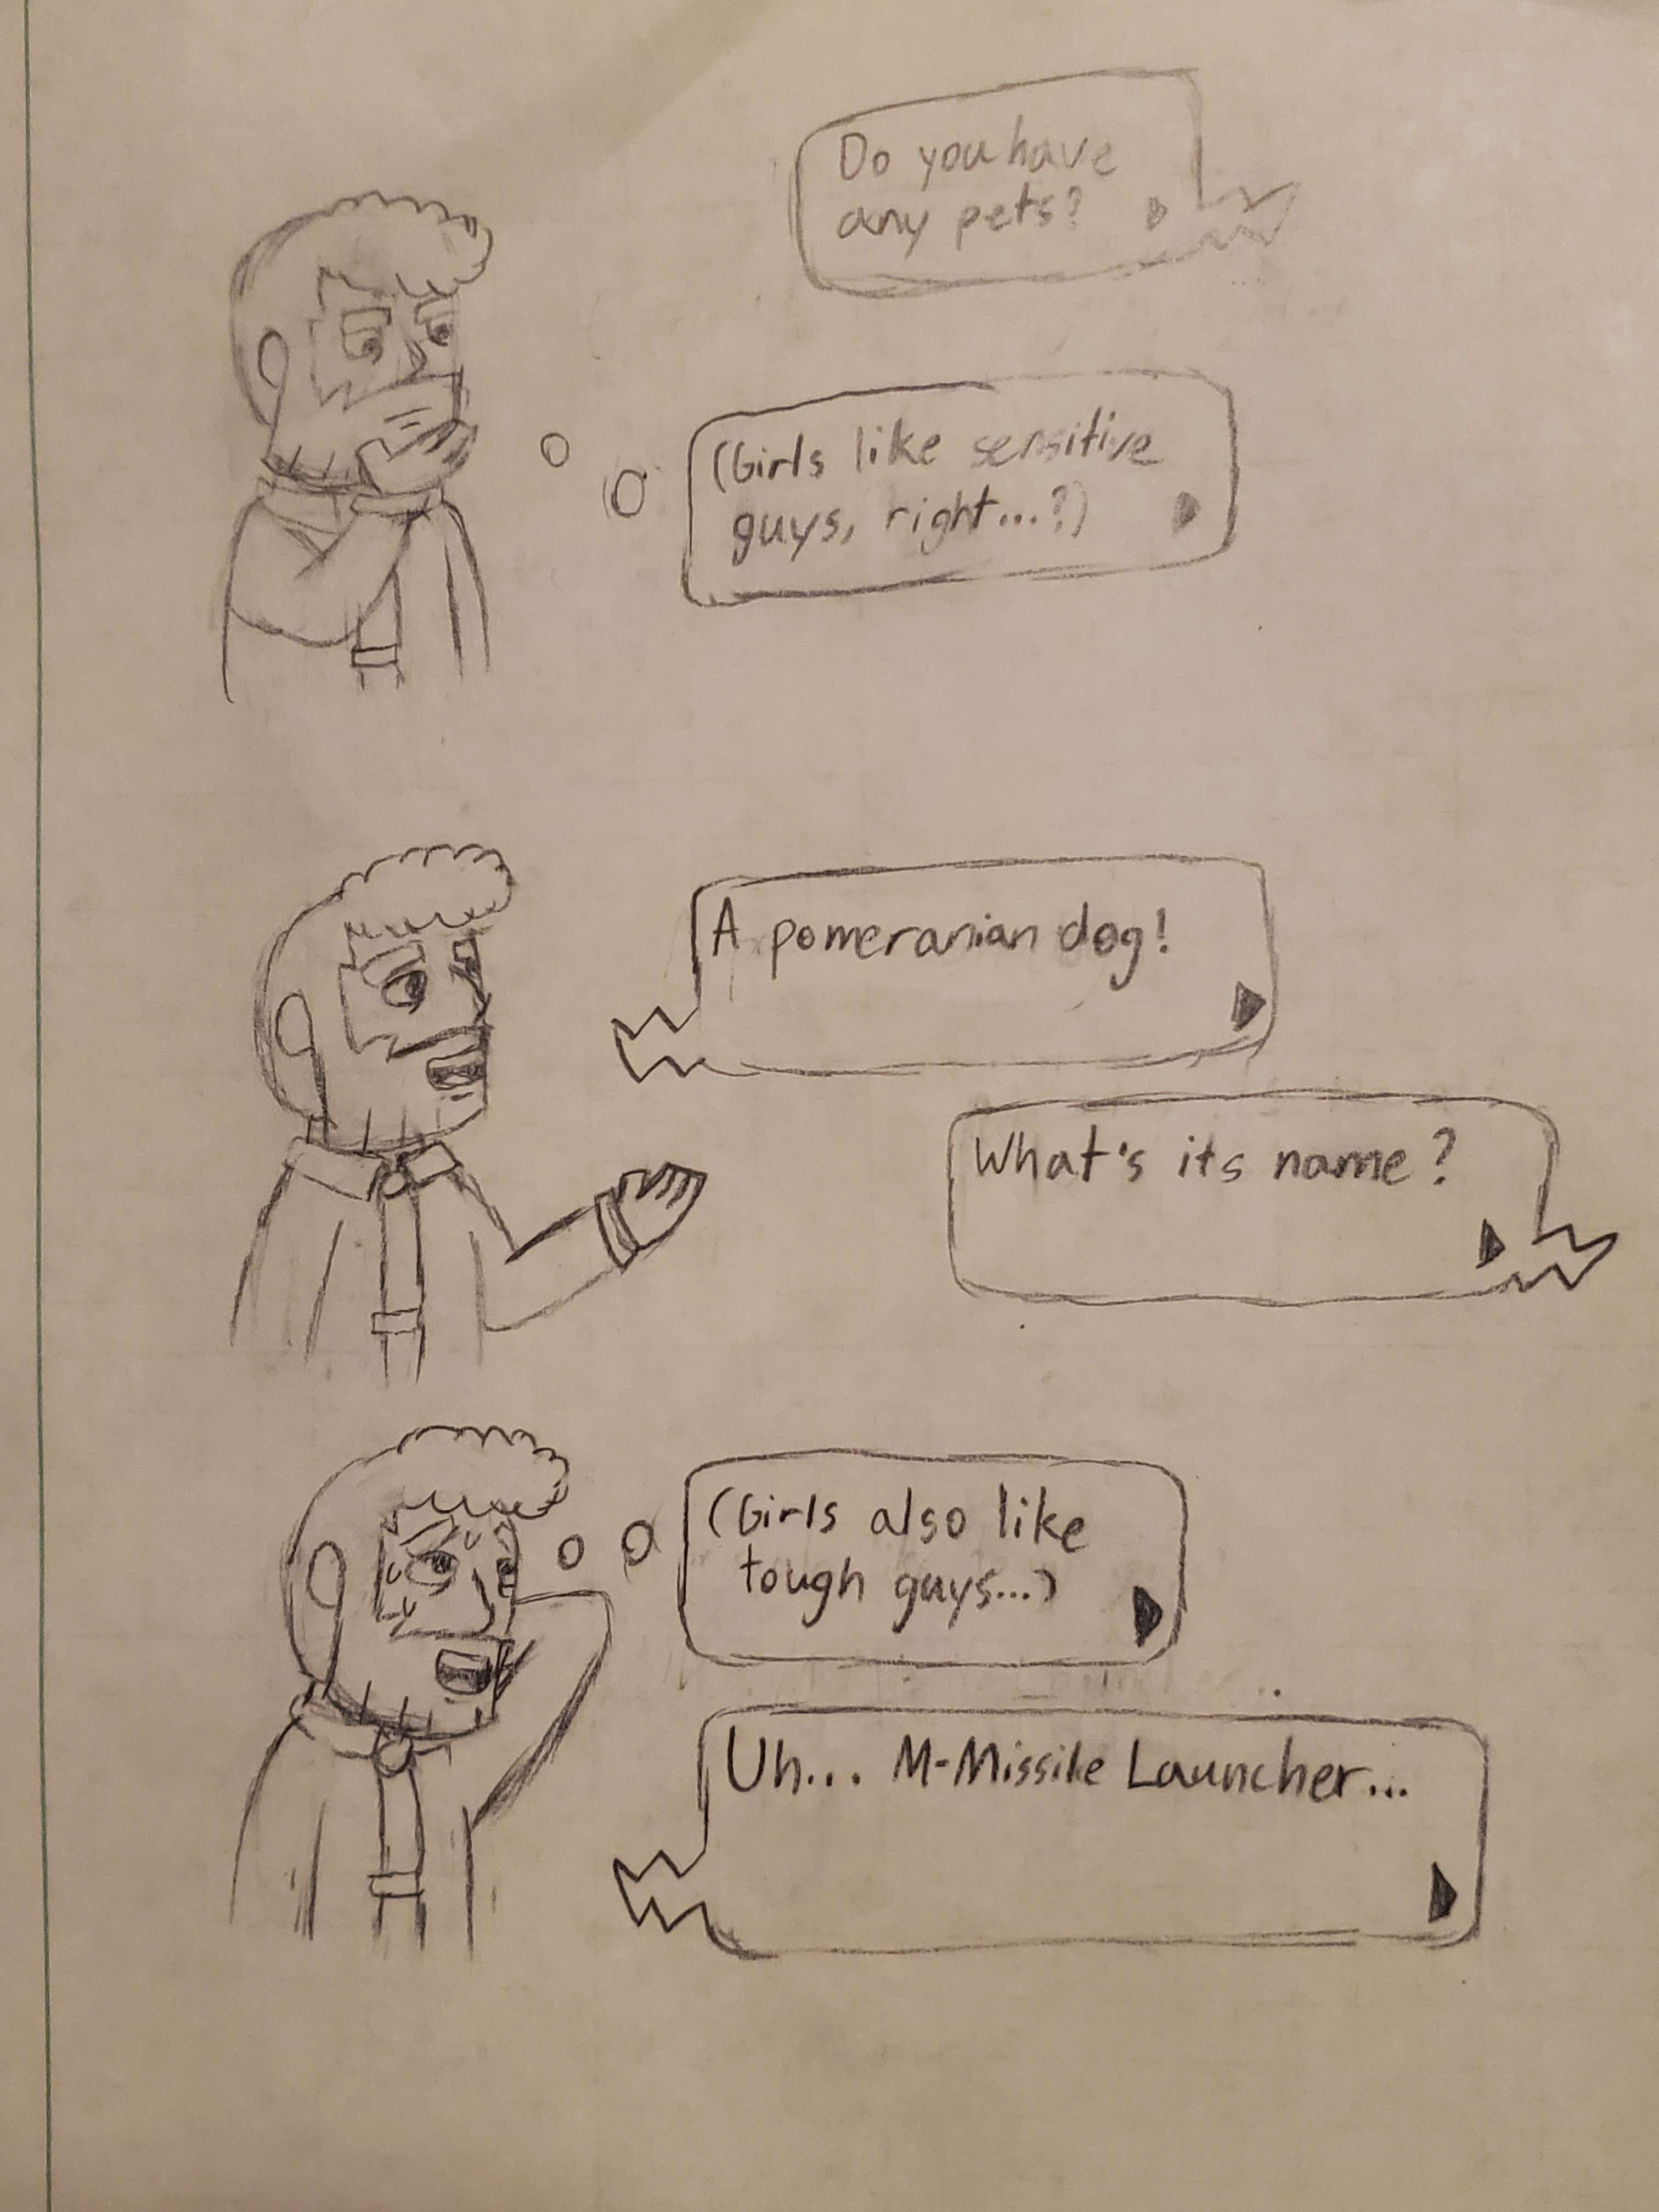 Do you have
any pets?
(Girls like sensitive
guys, right...?)
A pomeranian dog!
What's its name?
(Girls also like
tough guys...)
Uh... M-Missile Launcher...